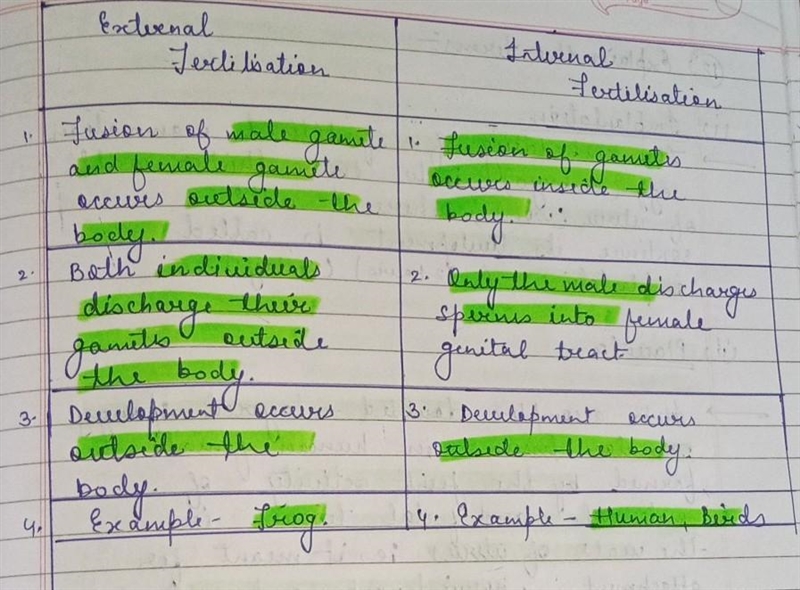 External
Fertilisation
1. Fusion of male gamete
and female gamete
occurs outside the
body.
2. Both individuals
discharge their
gametes outside
the body.
3. Development occurs
outside the
body.
4. Example - Frog.
Internal
Fertilisation
1. Fusion of gametes
occurs inside the
body.
2. Only the male discharges
sperms into female
genital tract
3. Development occurs
outside the body.
4. Example - Human, Birds